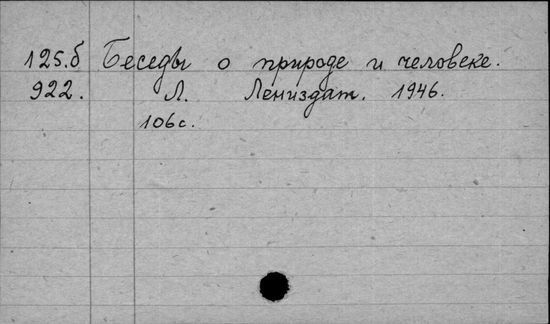 125.б Беседы о природе и человеке.
922. Л. Лениздат. 1946.
106 с.